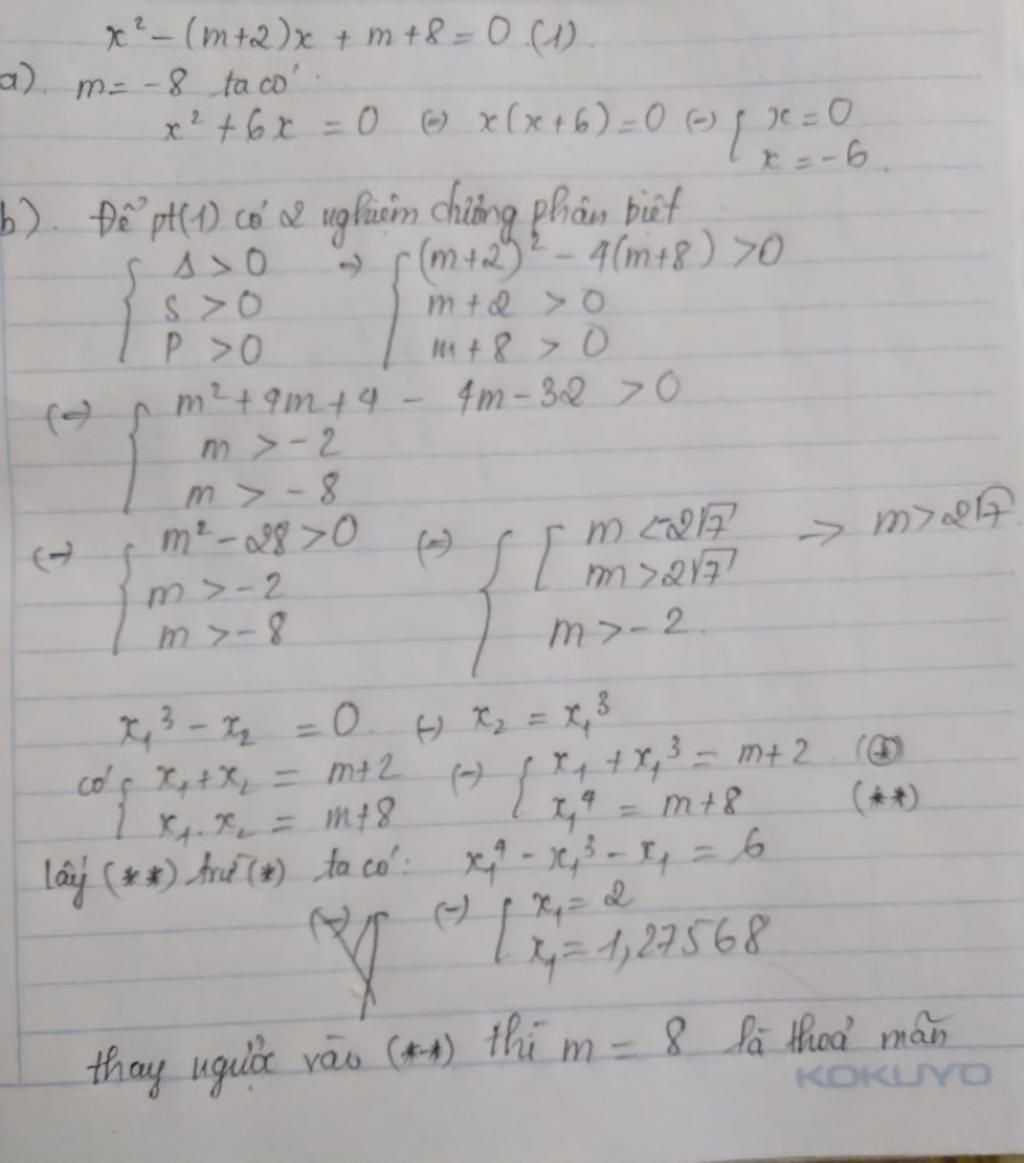 x² - (m+2)x + m+8 = 0 (1).
a). m = -8 ta có
x² + 6x = 0 (=) x(x+6) = 0 (=) { x = 0
x = -6.
b). Để pt(1) có 2 nghiệm dương phân biệt
{ Δ > 0 => { (m+2)² - 4(m+8) > 0
S > 0 m+2 > 0
P > 0 m+8 > 0
(=) { m² + 4m + 4 - 4m - 32 > 0
m > -2
m > -8
(=) { m² - 28 > 0 (=) { [ m < -2√7 => m > 2√7
m > -2 m > 2√7
m > -8 m > -2.
x₁³ - x₂ = 0. (=) x₂ = x₁³
có { x₁ + x₂ = m+2 (=) { x₁ + x₁³ = m+2 (*)
x₁.x₂ = m+8 x₁⁴ = m+8 (**)
lấy (**) trừ (*) ta có: x₁⁴ - x₁³ - x₁ = 6
(=) [ x₁ = 2
x₁ = 1,27568
thay ngược vào (**) thì m = 8 là thoả mãn
KOKUYO